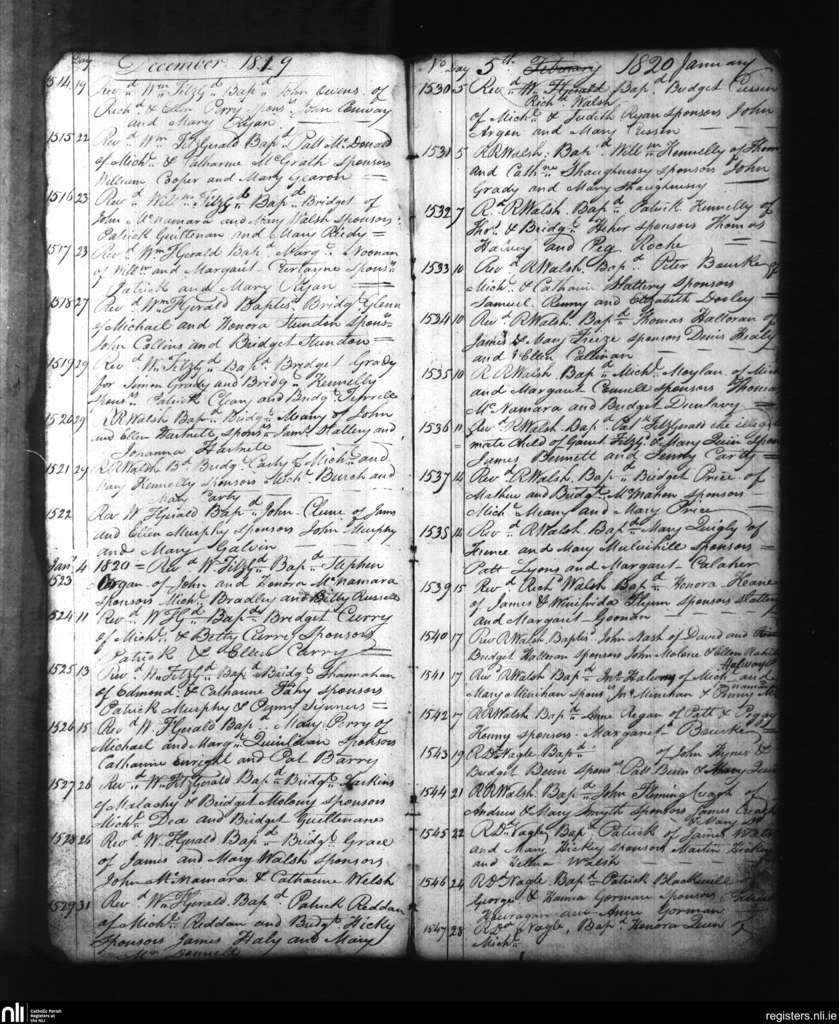 Day December 1819
1514 19 Revd Wm Fitzgd Bapd John Owens of
Richd & Ellen Perry Sponsrs John Conway
and Mary Ryan
1515 22 Revd Wm FitzGerald Bapd Patt McDonald
of Michl & Catharine McGrath Sponsors
William Cooper and Mary Gearon
1516 23 Revd Willm Fitzgd Bapd Bridget of
John McNamara and Mary Walsh Sponsors
Patrick Guillenan and Mary Reidy
1517 23 Revd Wm FGerald Bapd Margt Noonan
of Willm and Margaret Sponsrs
Patrick and Mary Ryan
1518 27 Revd Wm FGerald Baptsd Bridgt Glynn
of Michael and Honora Hundon Sponsrs
John Collins and Bridget Hundon
1519 29 Revd Wm Fitzgd Bapd Bridget Grady
for Simon Grady and Bridgt Kennelly
Sponsrs Patrick Cleary and Bridgt Tyrrell
1520 29 R RWalsh Bapd Bridgt Meany of John
and Ellen Hartnett Sponsrs Jams Slattery and
Johanna Hartnett
1521 29 R RWalsh Bd Bridgt Carty of Michl and
Mary Kennelly Sponsors Michl Burch and
Mary Carty
1522 Rev W FGerald Bapd John Clune of Jams
and Ellen Murphy Sponsors John Murphy
and Mary Galvin
Jany 4 1820 = Revd W Fitzgd Bapd Stephen
1523 Organ of John and Honora McNamara
Sponsors Michl Bradley and Betty Russell
1524 11 Revd W FGd Bapd Bridget Curry
of Michl & Betty Curry Sponsors
Patrick & Ellen Curry
1525 13 Revd Wm Fitzgd Bapd Bridgt Shannahan
of Edmond & Catharine Fahy Sponsors
Patrick Murphy & Penny Spinners
1526 15 Revd W. FGerald Bapd Mary Perry of
Michael and Margt Quinlivan Sponsors
Catharine Enright and Pat Barry
1527 26 Revd Wm FitzGerald Bapd Bridgt Larkins
of Malachy & Bridget Molony Sponsors
Michl Dea and Bridget Guillenane
1528 26 Revd Wm FGerald Bapd Bridgt Grace
of James and Mary Walsh Sponsors
John McNamara & Catharine Welsh
1529 31 Revd Wm FGerald Bapd Patrick Reddan
of Michl Reddan and Bridgt Hickly
Sponsors James Haly and Mary
No Day 5th February 1820 January
1530 5 Revd W. FGerald Bapd Bridget
Richd Walsh
of Michl & Judith Ryan Sponsors John
Argon and Mary
1531 5 R RWalsh Bapd Willm Kennelly of Thom
and Cathne Shaughnessy Sponsors John
Grady and Mary Shaughnessy
1532 7 Rd RWalsh Bapd Patrick Kennelly of
Thos & Bridgt Fisher Sponsors Thomas
Halvey and Peg Roche
1533 10 Revd RWalsh Bapd Peter Bourke of
Michl & Catharin Slattery Sponsors
Samuel Kenny and Elizabeth Dooley
1534 10 Revd R.Walsh Bapd Thomas Halloran of
James & Mary Freeze Sponsors Denis Healy
and Ellen Callinan
1535 10 R RWalsh Bapd Michl Moylan of Mich
and Margaret Connell Sponsors Thomas
McNamara and Bridget Dunlavy
1536 11 Revd RWalsh Bapd Pat FitzGerald the illegit
mate Child of Garret Fitzgd & Mary Quin Spon
James Bennett and Jenny Carty
1537 14 Revd R.Walsh Bapd Bridget Price of
Mathew and Bridgt McMahon Sponsors
Michl Meany and Mary Price
1535 14 Revd RWalsh Bapd Mary Quigly of
and Mary Mulvihill Sponsors
Patt Lyons and Margaret Calaher
1539 15 Revd Richd Walsh Bapd Honora Keane
of James & Winifrida Flynn Sponsors
and Margaret Goonan
1540 17 Revd RWalsh Baptsd John Nash of David and
Bridget Halloran Sponsors John Molone & Ellen
1541 17 Revd RWalsh Bapd Jno Halvey of Michl and
Mary Minihan Sponsrs Jno Minihan & Penny
1542 17 R RWalsh Bapd Anne Regan of Patt & Peggy
Kenny Sponsors Margaret Bourke
1543 19 R Dl Nagle Bapd of John Hynes &
Bridget Bourn Sponsrs Patt
1544 21 R RWalsh Bapd John Fleming Creagh of
Andrew & Mary Smyth Sponsors James Creagh
& Mary
1545 22 R Dl Nagle Bapd Patrick of James Wals
and Mary Hickey Sponsors Martin Hickey
and Walsh
1546 24 R Dl Nagle Bapd Patrick Blackwell
George & Hanna Gorman Sponsors
and Anne Gorman
1547 28 R Dl Nagle Bapd Honora Quin of
Michl
nli
Catholic Parish
Registers at
the NLI
registers.nli.ie